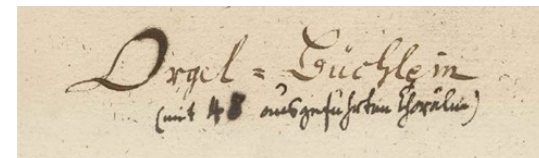 Orgel=Büchlein
(mit 48 ausgeführten Chorälen)